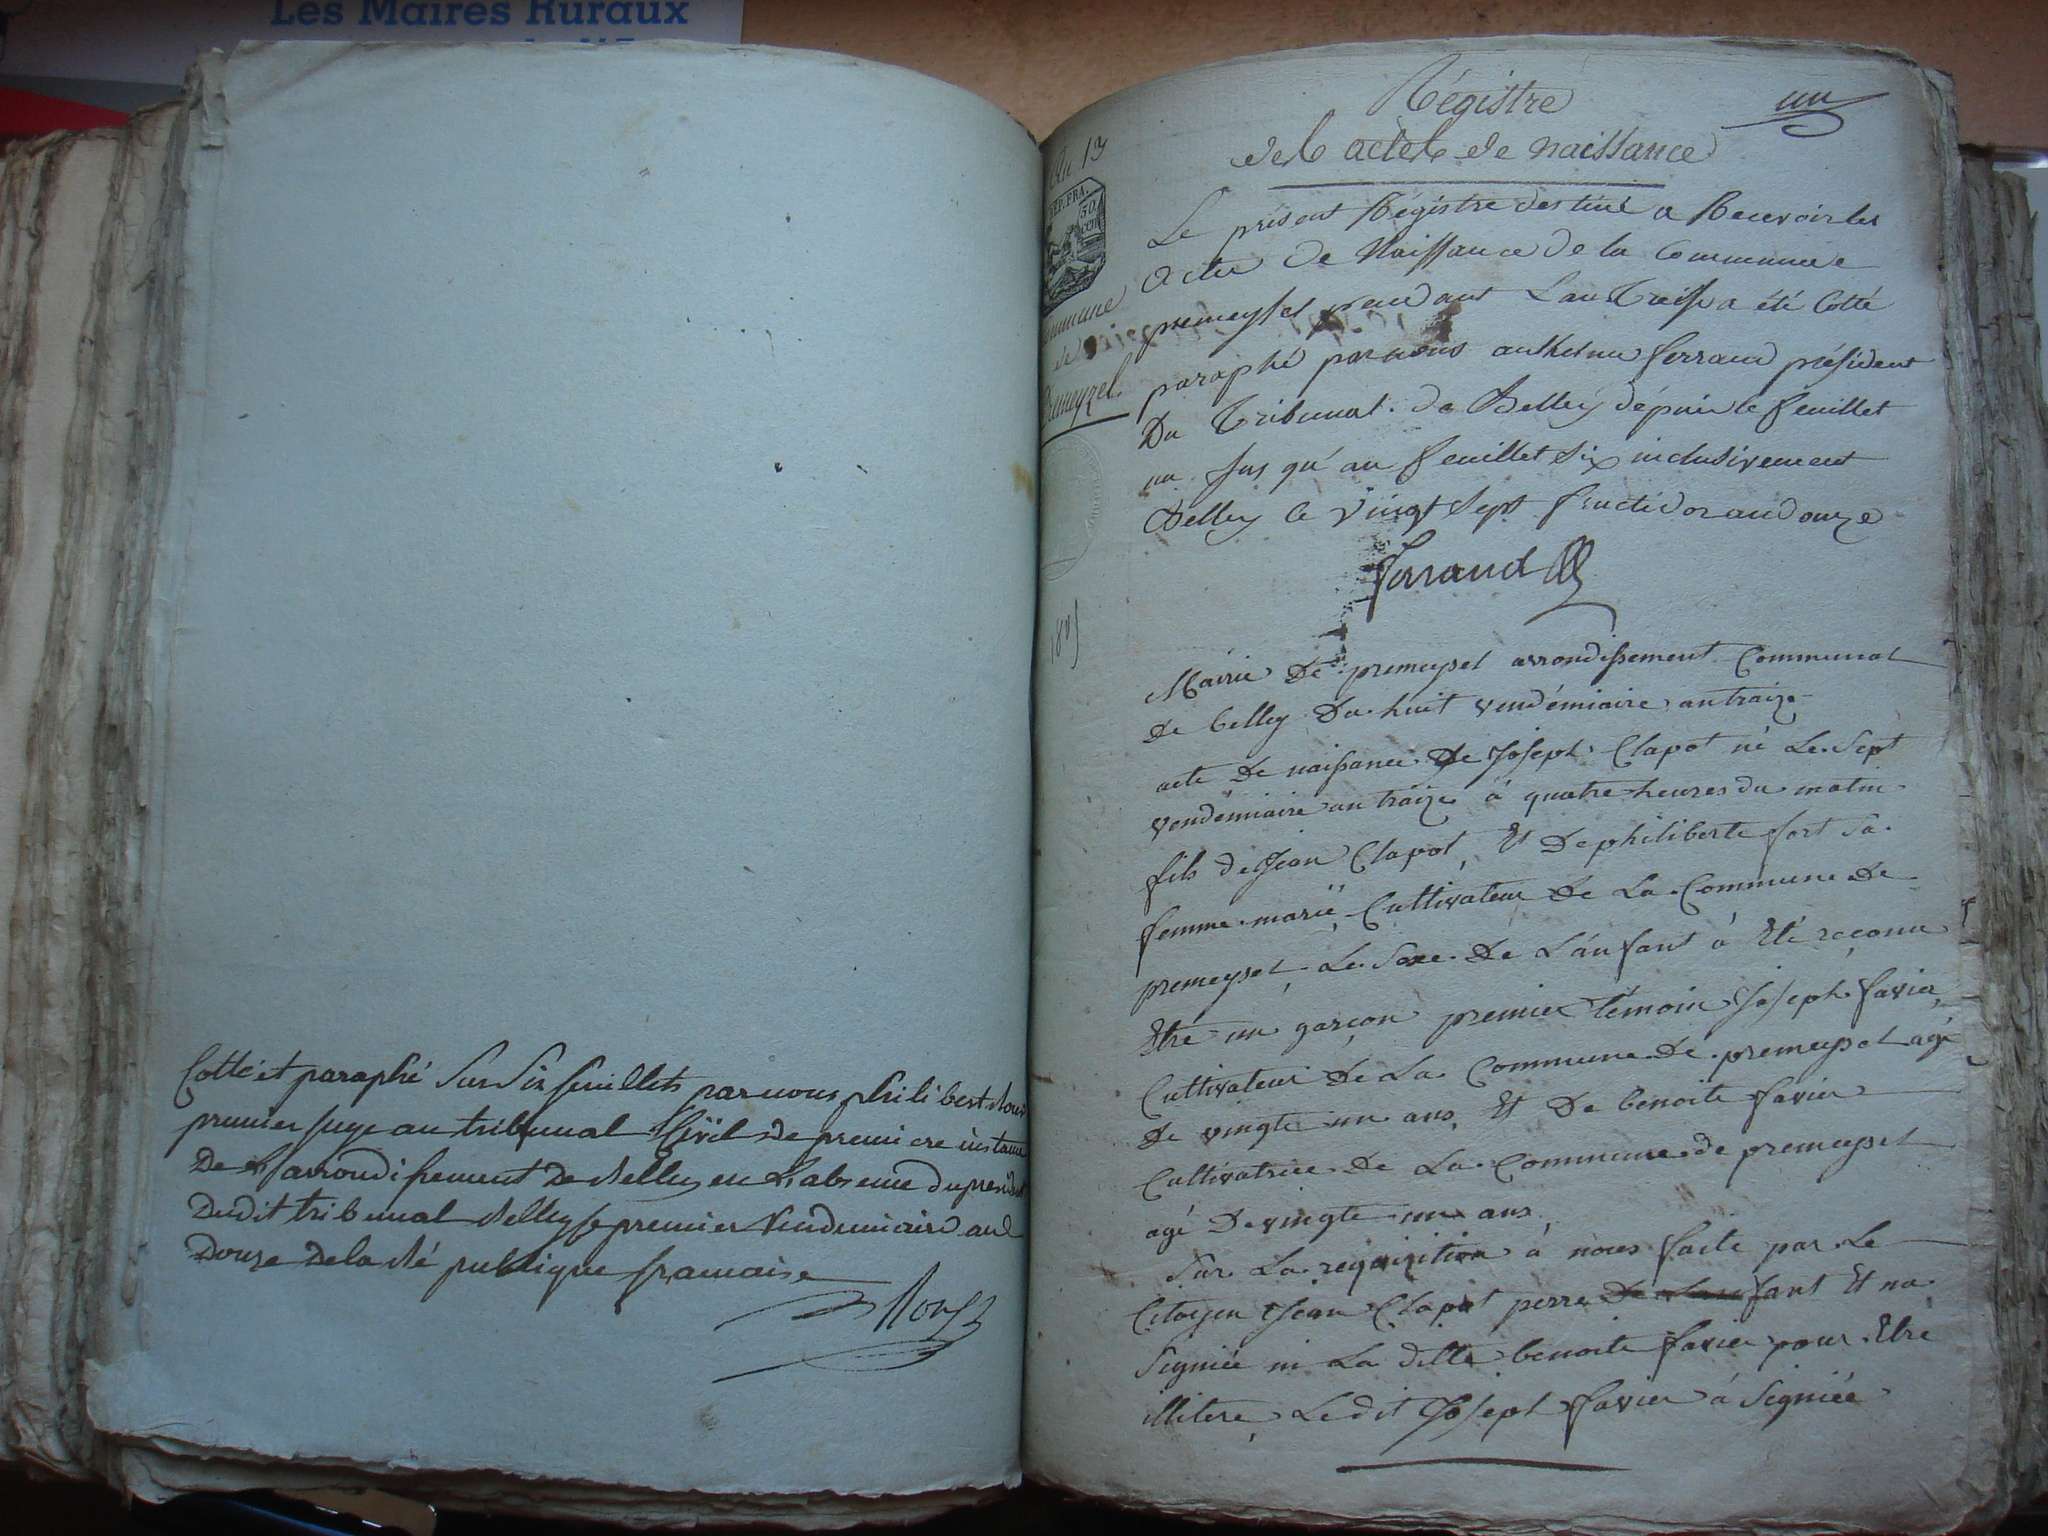 Les Maires Ruraux
Cotté et paraphé sur six feuillets par nous philibert
premier juge au tribunal Civil de premiere instance
De L'arrondissement De Belley en L'absence du president
Dudit tribunal Belley le premier Vendemiaire an
Douze De la République française
un
Régistre
des actes de naissance
An 13
REP. FRA.
50
cent
Commune
de
Premeyzel
1805
Le présent Régistre destiné a Recevoir les
Actes De Naissance de la Commune
premeyssel pendant L'an Treise a été Cotté
paraphé par nous anthelme ferrand président
Du Tribunal de Belley dépuis le feuillet
un jus qu'au feuillet six inclusivement
Belley le vingt sept fructidor an douze
ferrand
Mairie De premeysel arrondissement Communal
De belley Du huit vendémiaire an traize
acte De naissance De Joseph Clapot né Le Sept
vendémiaire an traize à quatre heures du matin
fils de Jean Clapot, Et De philiberte fort sa
femme marié Cultivateur De La Commune De
premeysel, Le Sexe De L'anfant à Eté reconu
Etre un garçon premier témoin Joseph favier
Cultivateur De La Commune De premeysel agé
De vingte un ans, Et De benoite favier
Cultivatrice De La Commune de premeysel
agé De vingte un ans
Sur La requizition à nous faite par Le
Citoyen Jean Clapot perre De Lanfant Et na
Signiée ni La ditte benoite favier pour Etre
illitere, Ledit Joseph favier à Signiée